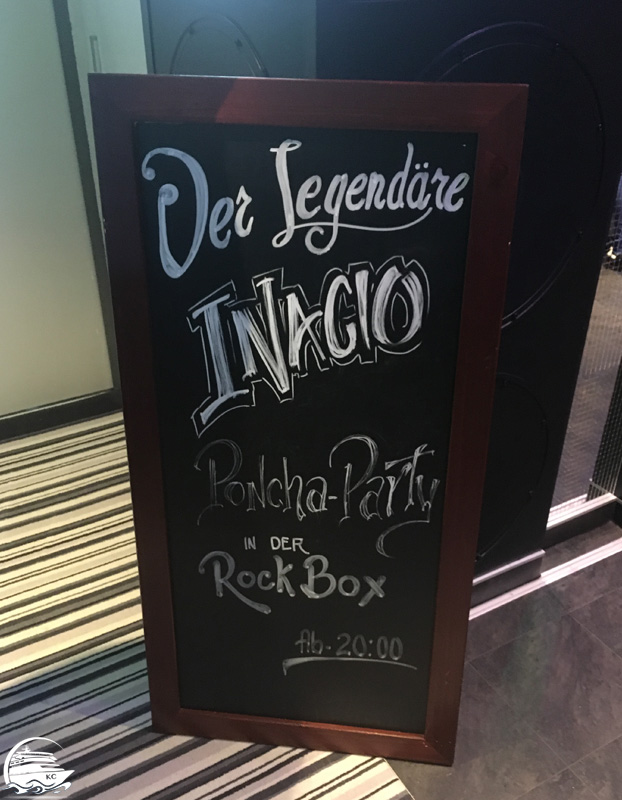 Der Legendäre
INACIO
Poncha-Party
IN DER
Rock Box
Ab. 20:00
KC